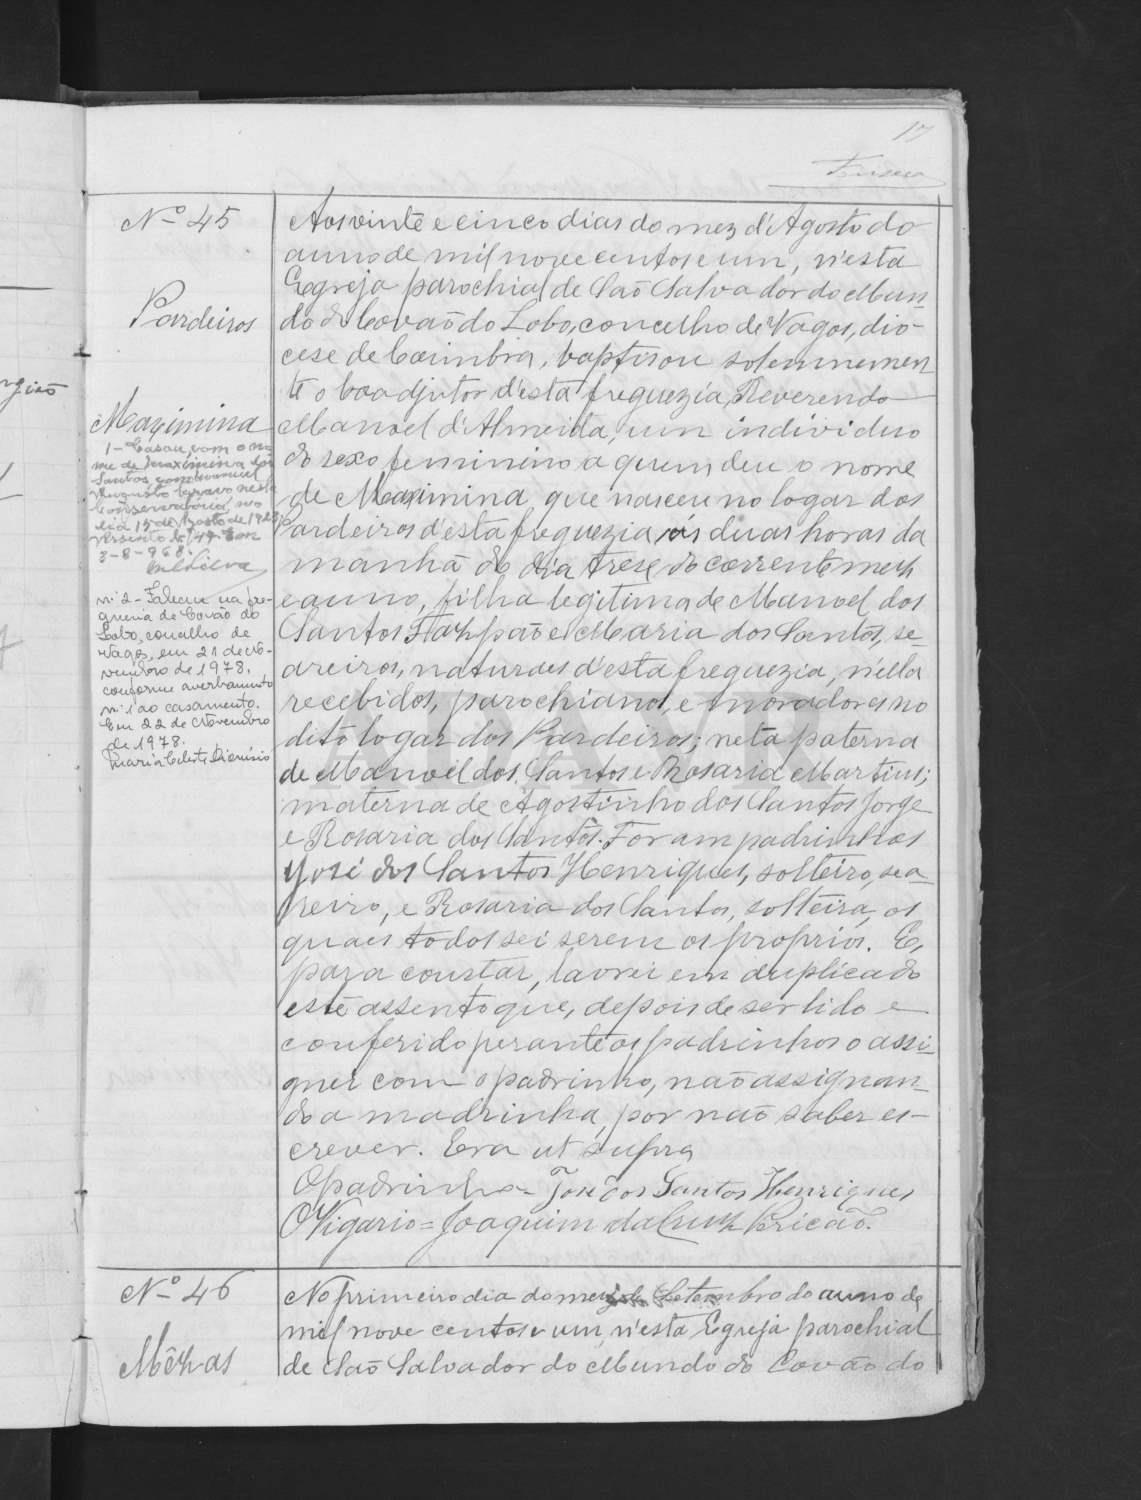 17
Nº 45
Pardeiros
Maximina
1 - Casou com o no-
me de Maximina dos
Santos, com Manuel
Augusto nesta
Conservatória, no
dia 15 de de 192
Assento nº 149. Em
3-8-968.
nº 2 - Faleceu na fre-
guesia de Covão do
Lobo, concelho de
Vagos, em 21 de No-
vembro de 1978.
conforme averbamento
nº 1 ao casamento.
Em 22 de Novembro
de 1978.
Maria Celeste Dionísio
Aos vinte e cinco dias do mez d'Agosto do
anno de mil nove centos e um, n'esta
Egreja parochial de São Salvador do Mun-
do do Covão do Lobo, concelho de Vagos, dio-
cese de Coimbra, baptisou solemnemen-
te o Coadjutor d'esta freguezia, Reverendo
Manoel d'Almeida, um individuo
do sexo feminino a quem deu o nome
de Maximina que nasceu no logar dos
Pardeiros d'esta freguezia, ás duas horas da
manhã do dia trese do corrente mez
e anno, filha legitima de Manoel dos
Santos Fazpão e Maria dos Santos, se-
areiros, naturaes d'esta freguezia, n'ella
recebidos, parochianos, e moradores no
dito logar dos Pardeiros; neta paterna
de Manoel dos Santos e Rosaria Martins;
materna de Agostinho dos Santos Jorge
e Rosaria dos Santos. Foram padrinhos
José dos Santos Henriques, solteiro, sea-
reiro, e Rosaria dos Santos, solteira, os
quaes todos sei serem os proprios. E,
para constar, lavrei em duplicado
este assento que, depois de ser lido e
conferido perante os padrinhos o assi-
gnei com o padrinho, não assignan-
do a madrinha, por não saber es-
crever. Era ut supra
O padrinho = José dos Santos Henriques
O Vigario = Joaquim da Cruz Pericão.
Nº 46
Mêzas
No primeiro dia do mez de Setembro do anno de
mil nove centos e um, n'esta Egreja parochial
de São Salvador do Mundo do Covão do